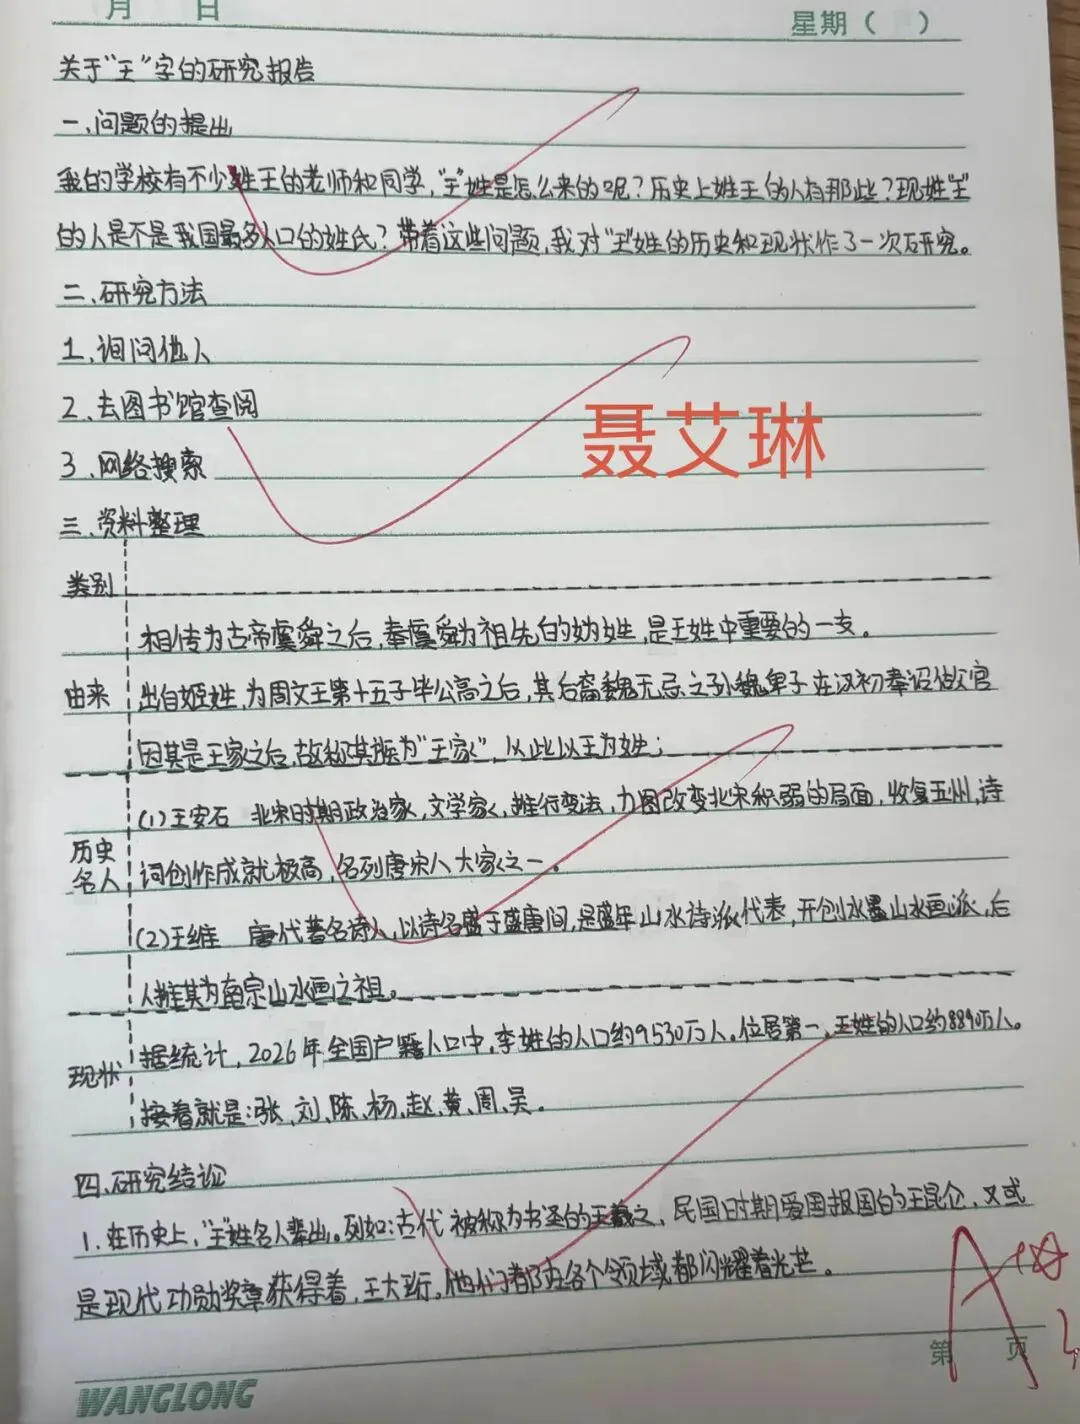 月 日
星期（ ）
关于"王"字的研究报告
一、问题的提出
我的学校有不少姓王的老师和同学，"王"姓是怎么来的呢？历史上姓王的人有那些？现姓"王"
的人是不是我国最多人口的姓氏？带着这些问题，我对"王"姓的历史和现状作了一次研究。
二、研究方法
1、询问他人
2、去图书馆查阅
聂艾琳
3、网络搜索
三、资料整理
类别
相传为古帝虞舜之后，奉虞舜为祖先的妫姓，是王姓中重要的一支。
由来 出自姬姓，为周文王第十五子毕公高之后，其后裔魏无忌之孙魏卑子在汉初奉诏做官
因其是王家之后，故称其族为"王家"，从此以王为姓；
（1）王安石 北宋时期政治家，文学家，推行变法，力图改变北宋积弱的局面，收复五州，诗
历史名人 词创作成就极高，名列唐宋八大家之一。
（2）王维 唐代著名诗人，以诗名盛于盛唐间，是盛年山水诗派代表，开创水墨山水画派，后
人推其为南宗山水画之祖。
现状 据统计，2026年全国户籍人口中，李姓的人口约9530万人。位居第一，王姓的人口约8890万人。
接着就是：张、刘、陈、杨、赵、黄、周、吴。
四、研究结论
1、在历史上，"王"姓名人辈出。列如：古代被称为书圣的王羲之，民国时期爱国报国的王昆仑，又或
是现代功勋奖章获得着，王大珩，他们都在各个领域都闪耀着光芒。
A
第 页
WANGLONG